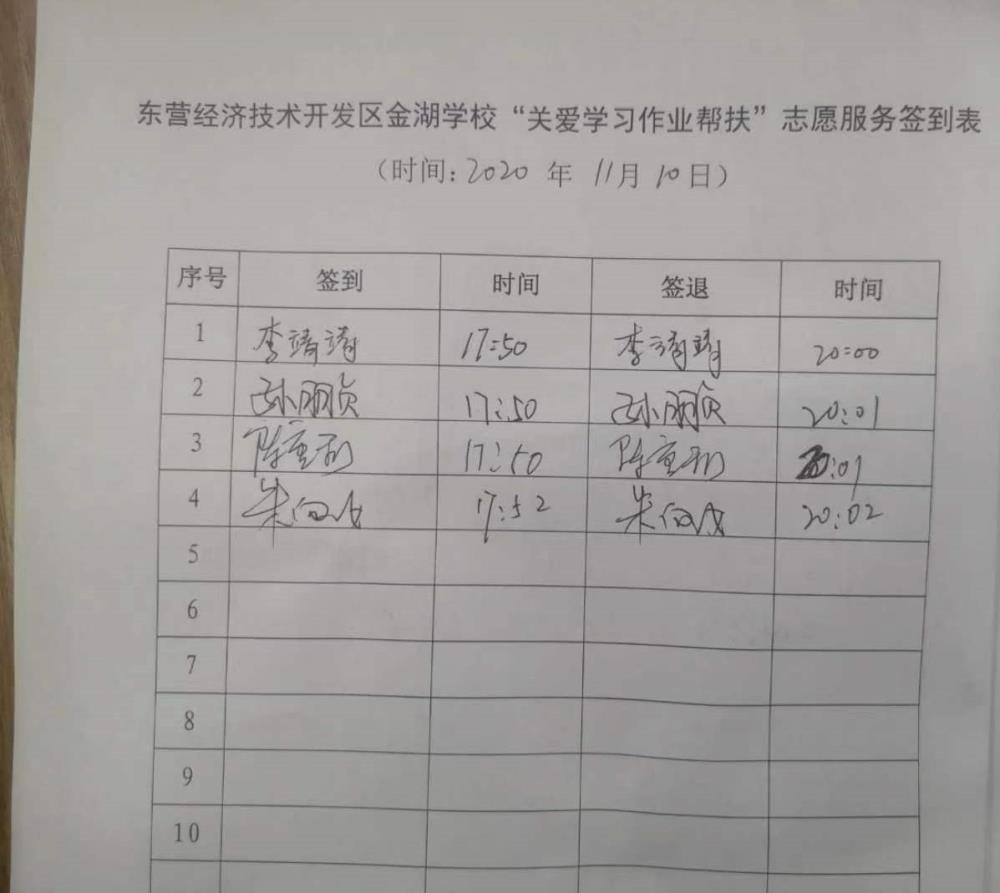 东营经济技术开发区金湖学校“关爱学习作业帮扶”志愿服务签到表
（时间：2020 年 11月 10日）
序号 签到 时间 签退 时间
1 李靖靖 17:50 李靖靖 20:00
2 孙丽贞 17:50 孙丽贞 20:01
3 陈重利 17:50 陈重利 20:01
4 朱 17:52 朱 20:02
5
6
7
8
9
10